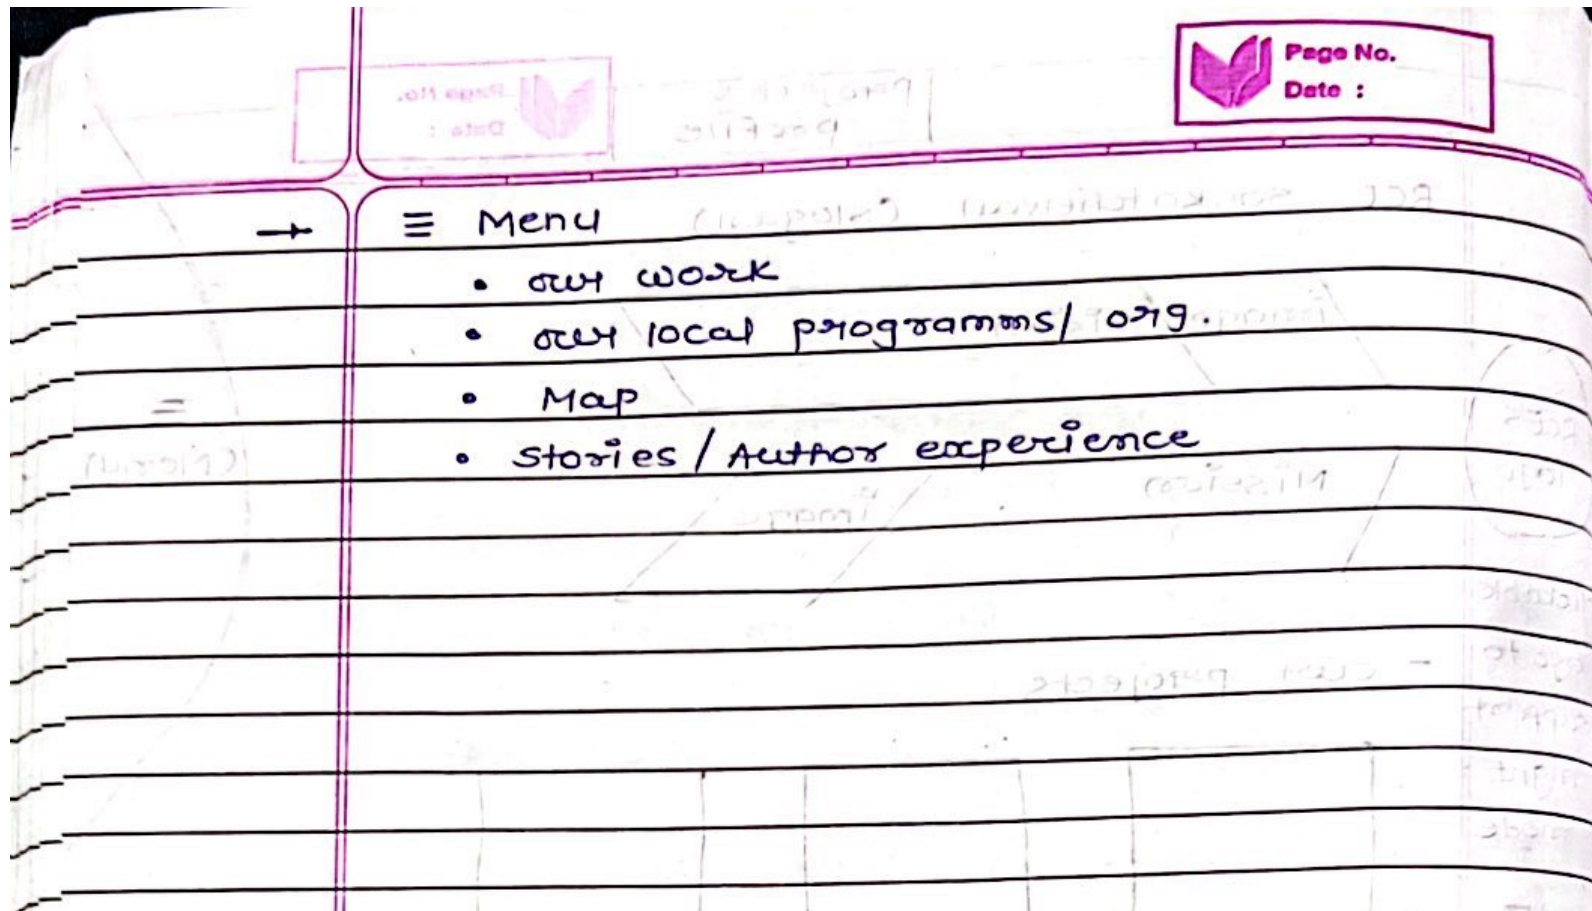 Page No.
Date :
→ ≡ Menu
• our work
• our local programms/ org.
• Map
• Stories / Author experience